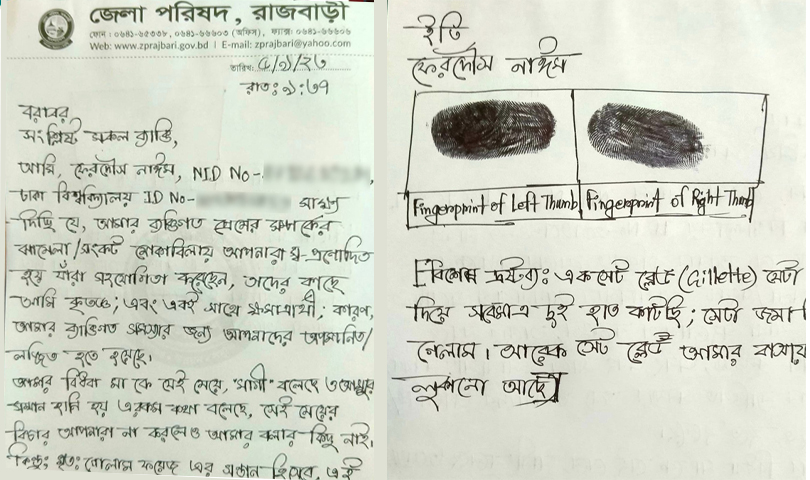 জেলা পরিষদ, রাজবাড়ী
ফোন : ০৬৪১-৬৫৩৩৮, ০৬৪১-৬৬৬০৩ (অফিস), ফ্যাক্স: ০৬৪১-৬৬৬০৬
Web: www.zprajbari.gov.bd | E-mail: zprajbari@yahoo.com
তারিখ:
রাত: ৯:৩৭
বরাবর
সংশ্লিষ্ট সকল ব্যক্তি,
আমি, ফেরদৌস নাঈম, NID No-
ঢাকা বিশ্ববিদ্যালয় ID No- সাক্ষ্য
দিচ্ছি যে, আমার ব্যক্তিগত সম্পর্কের
ঝামেলা/সংকট মোকাবিলায় আপনারা স্ব-প্রণোদিত
হয়ে যাঁরা সহযোগিতা করেছেন, তাদের কাছে
আমি কৃতজ্ঞ; এবং একই সাথে ক্ষমাপ্রার্থী, কারণ,
আমার ব্যক্তিগত সমস্যার জন্য আপনাদের অপমানিত/
লজ্জিত হতে হয়েছে।
আমার বিধবা মা কে সেই মেয়ে, "মাগী" বলেছে
সম্মান হানি হয় এরকম কথা বলেছে, সেই মেয়ের
বিচার আপনারা না করলেও আমার বলার কিছু নাই,
কিন্তু: মৃত: গোলাম এর সন্তান হিসেবে, এই
ইতি
ফেরদৌস নাঈম
Fingerprint of Left Thumb
Fingerprint of Right Thumb
[বিশেষ দ্রষ্টব্য: একসেট ব্লেড (Gillette) যেটা
দিয়ে সবেমাত্র দুই হাত কাটছি; সেটা জমা দি
গেলাম। আরেক সেট ব্লেড আমার বাসায়
লুকানো আছে]